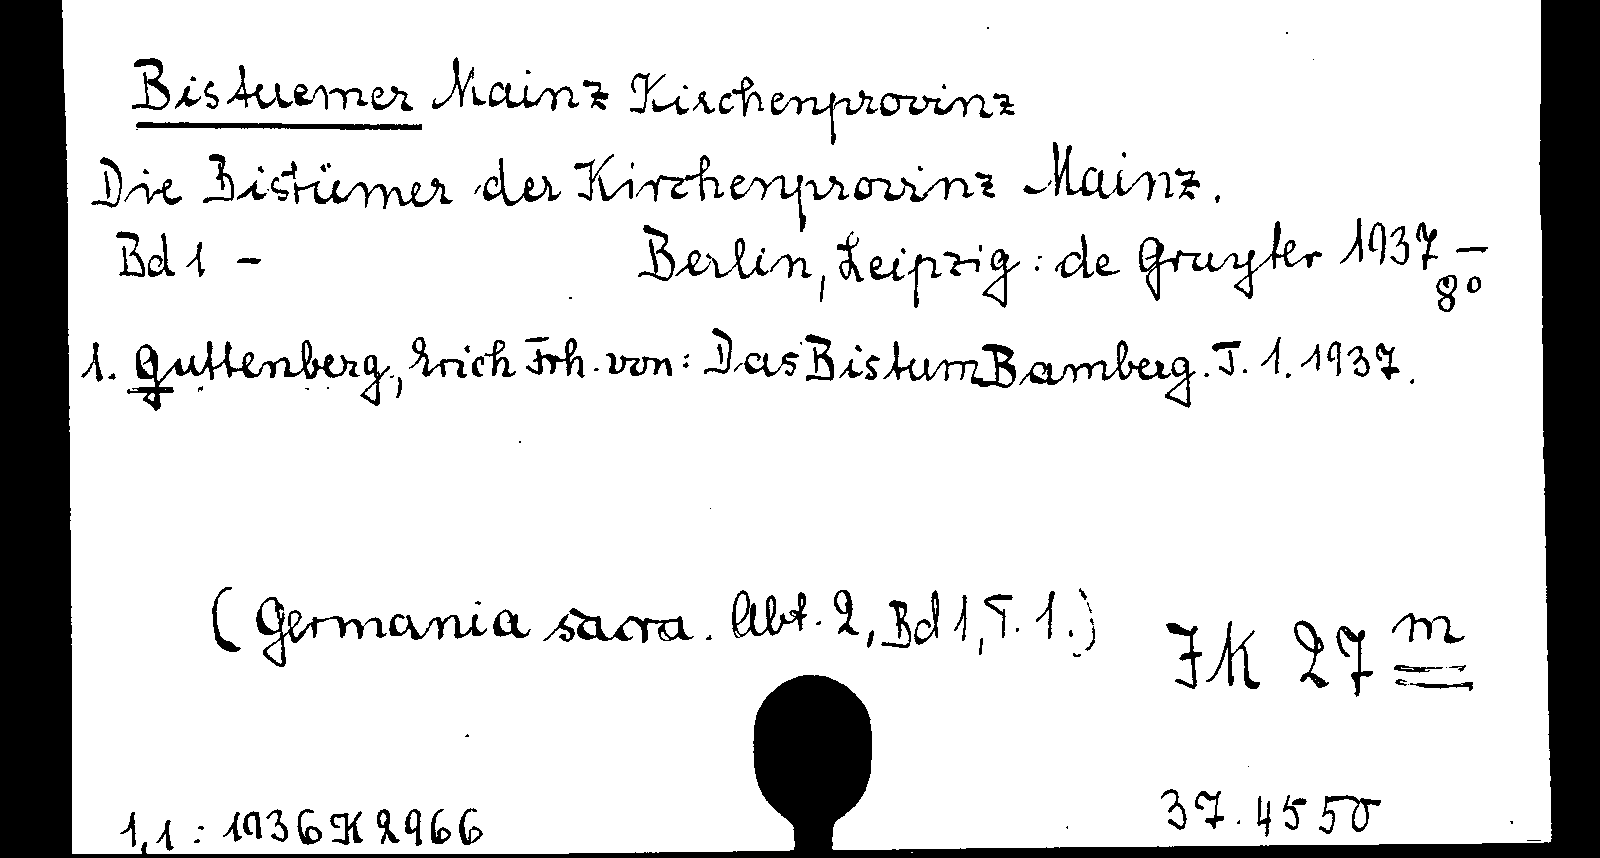 Bistuemer Mainz Kirchenprovinz
Die Bistümer der Kirchenprovinz Mainz.
Bd 1 – Berlin, Leipzig: de Gruyter 1937 –
8°
1. Guttenberg, Erich Frh. von: Das Bistum Bamberg. T. 1. 1937.
(Germania sacra. Abt. 2, Bd 1, T. 1.)
JK 27 m
1,1: 1936 K 2966
37. 4550